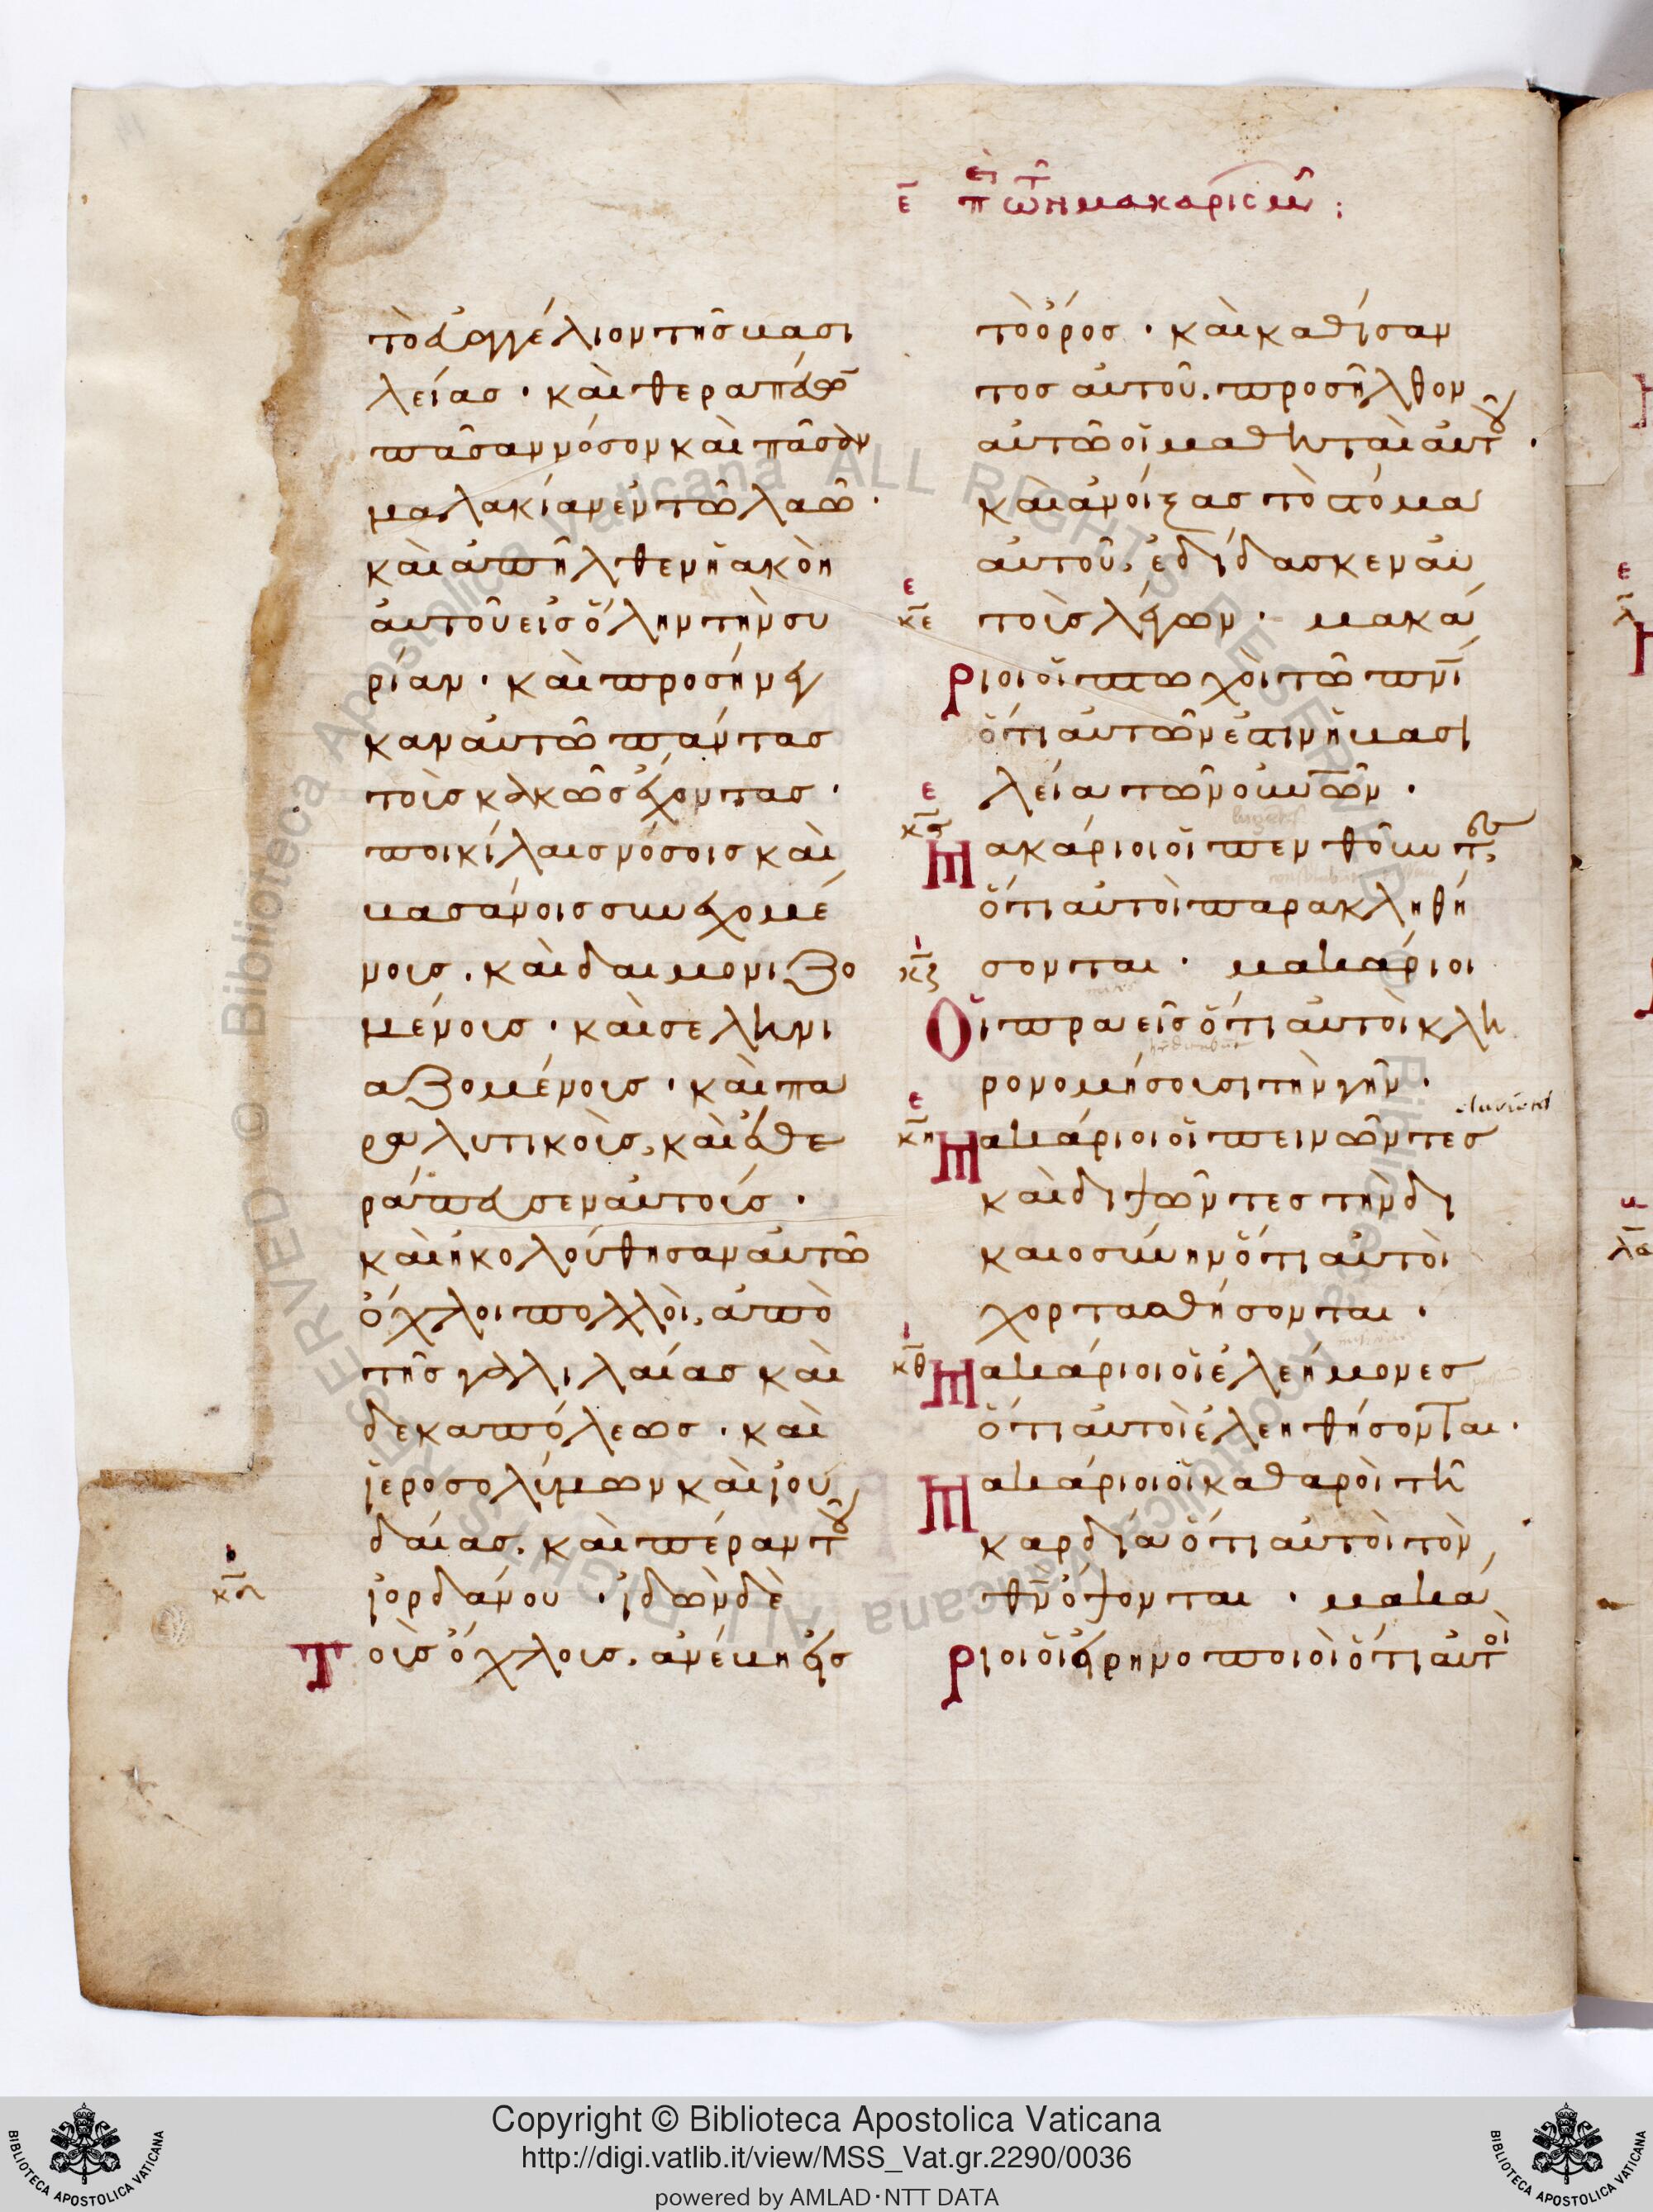 ε̅ περὶ τῶν μακαρισμῶν:
τὸ εὐαγγέλιον τῆς βασι
λείας · καὶ θεραπεύων
πᾶσαν νόσον καὶ πᾶσαν
μαλακίαν ἐν τῶ λαῶ ·
καὶ ἀπῆλθεν ἡ ἀκοὴ
αὐτοῦ εἰς ὅλην τὴν συ
ρίαν · καὶ προσήνεγ
καν αὐτῶ πάντας
τοὺς κακῶς ἔχοντας ·
ποικίλαις νόσοις καὶ
βασάνοις συνεχομέ
νους . καὶ δαιμονιζο
μένους · καὶ σεληνι
αζομένους · καὶ πα
ραλυτικοὺς, καὶ ἐθε
ράπευσεν αὐτούς ·
καὶ ἠκολούθησαν αὐτῶ
ὄχλοι πολλοὶ, ἀπὸ
τῆς γαλιλαίας καὶ
δεκαπόλεως · καὶ
ἱεροσολύμων καὶ ἰου
δαίας . καὶ πέραν τοῦ
κ̅δ̅
ἰορδάνου · ἰδὼν δὲ
Τοὺς ὄχλους . ἀνέβη εἰς
τὸ ὄρος · καὶ καθίσαν
τος αὐτοῦ . προσῆλθον
αὐτῶ οἱ μαθηταὶ αὐτοῦ ·
καὶ ἀνοίξας τὸ στόμα
αὐτοῦ, ἐδίδασκεν αὐ
ε
κ̅ε̅ τοὺς λέγων · μακά
Ριοι οἱ πτωχοὶ τῶ πν̅ι̅
ὅτι αὐτῶν ἐστιν ἡ βασι
ε
λεία τῶν οὐν̅ῶν ·
κ̅ϛ̅
Μακάριοι οἱ πενθοῦντες
ὅτι αὐτοὶ παρακληθή
ι
κ̅ζ̅ σονται · μακάριοι
Οἱ πραεῖς ὅτι αὐτοὶ κλη
ρονομήσουσι τὴν γῆν ·
ε
κ̅η̅ Μακάριοι οἱ πεινῶντες
καὶ διψῶντες τὴν δι
καιοσύνην ὅτι αὐτοὶ
χορτασθήσονται ·
ι
κ̅θ̅ Μακάριοι οἱ ἐλεήμονες
ὅτι αὐτοὶ ἐλεηθήσονται ·
Μακάριοι οἱ καθαροὶ τῆ
καρδία ὅτι αὐτοὶ τὸν
θ̅ν̅ ὄψονται · μακά
Ριοι οἱ εἰρηνοποιοὶ ὅτι αὐτοὶ
Copyright © Biblioteca Apostolica Vaticana
http://digi.vatlib.it/view/MSS_Vat.gr.2290/0036
powered by AMLAD·NTT DATA